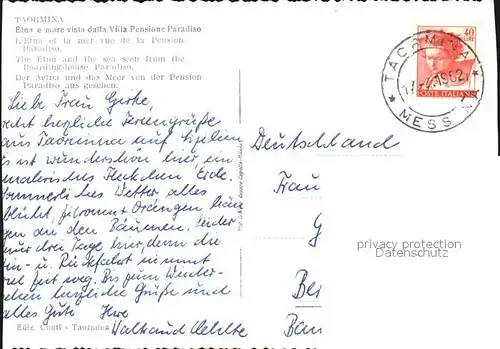 TAORMINA
Etna e mare vista dalla Villa Pensione Paradiso
L'Etna et la mer vue de la Pension
Paradiso.
The Etna and the sea seen from the
Boarding-house Paradiso.
Der Aetna und das Meer von der Pension
Paradiso aus gesehen.
40
POSTE ITALIANE
TAORMINA
1962
MESSINA
Liebe Frau
recht herzliche Feriengrüße
aus Taormina auf Sizilien
es ist wunderschön hier, ein
malerisches Fleckchen Erde.
Sommerliches Wetter alles
blüht, Zitronen + Orangen hän
gen an den Bäumen. Leider
nur drei Tage hier, denn die
Hin- u. Rückfahrt nimmt
viel Zeit weg. Bis zum Wieder-
sehen herzliche Grüße und
alles Gute Ihre
Waltraud
Ediz. Conti - Taormina
Deutschland
Frau
G
Be
Ban
privacy protection
Datenschutz